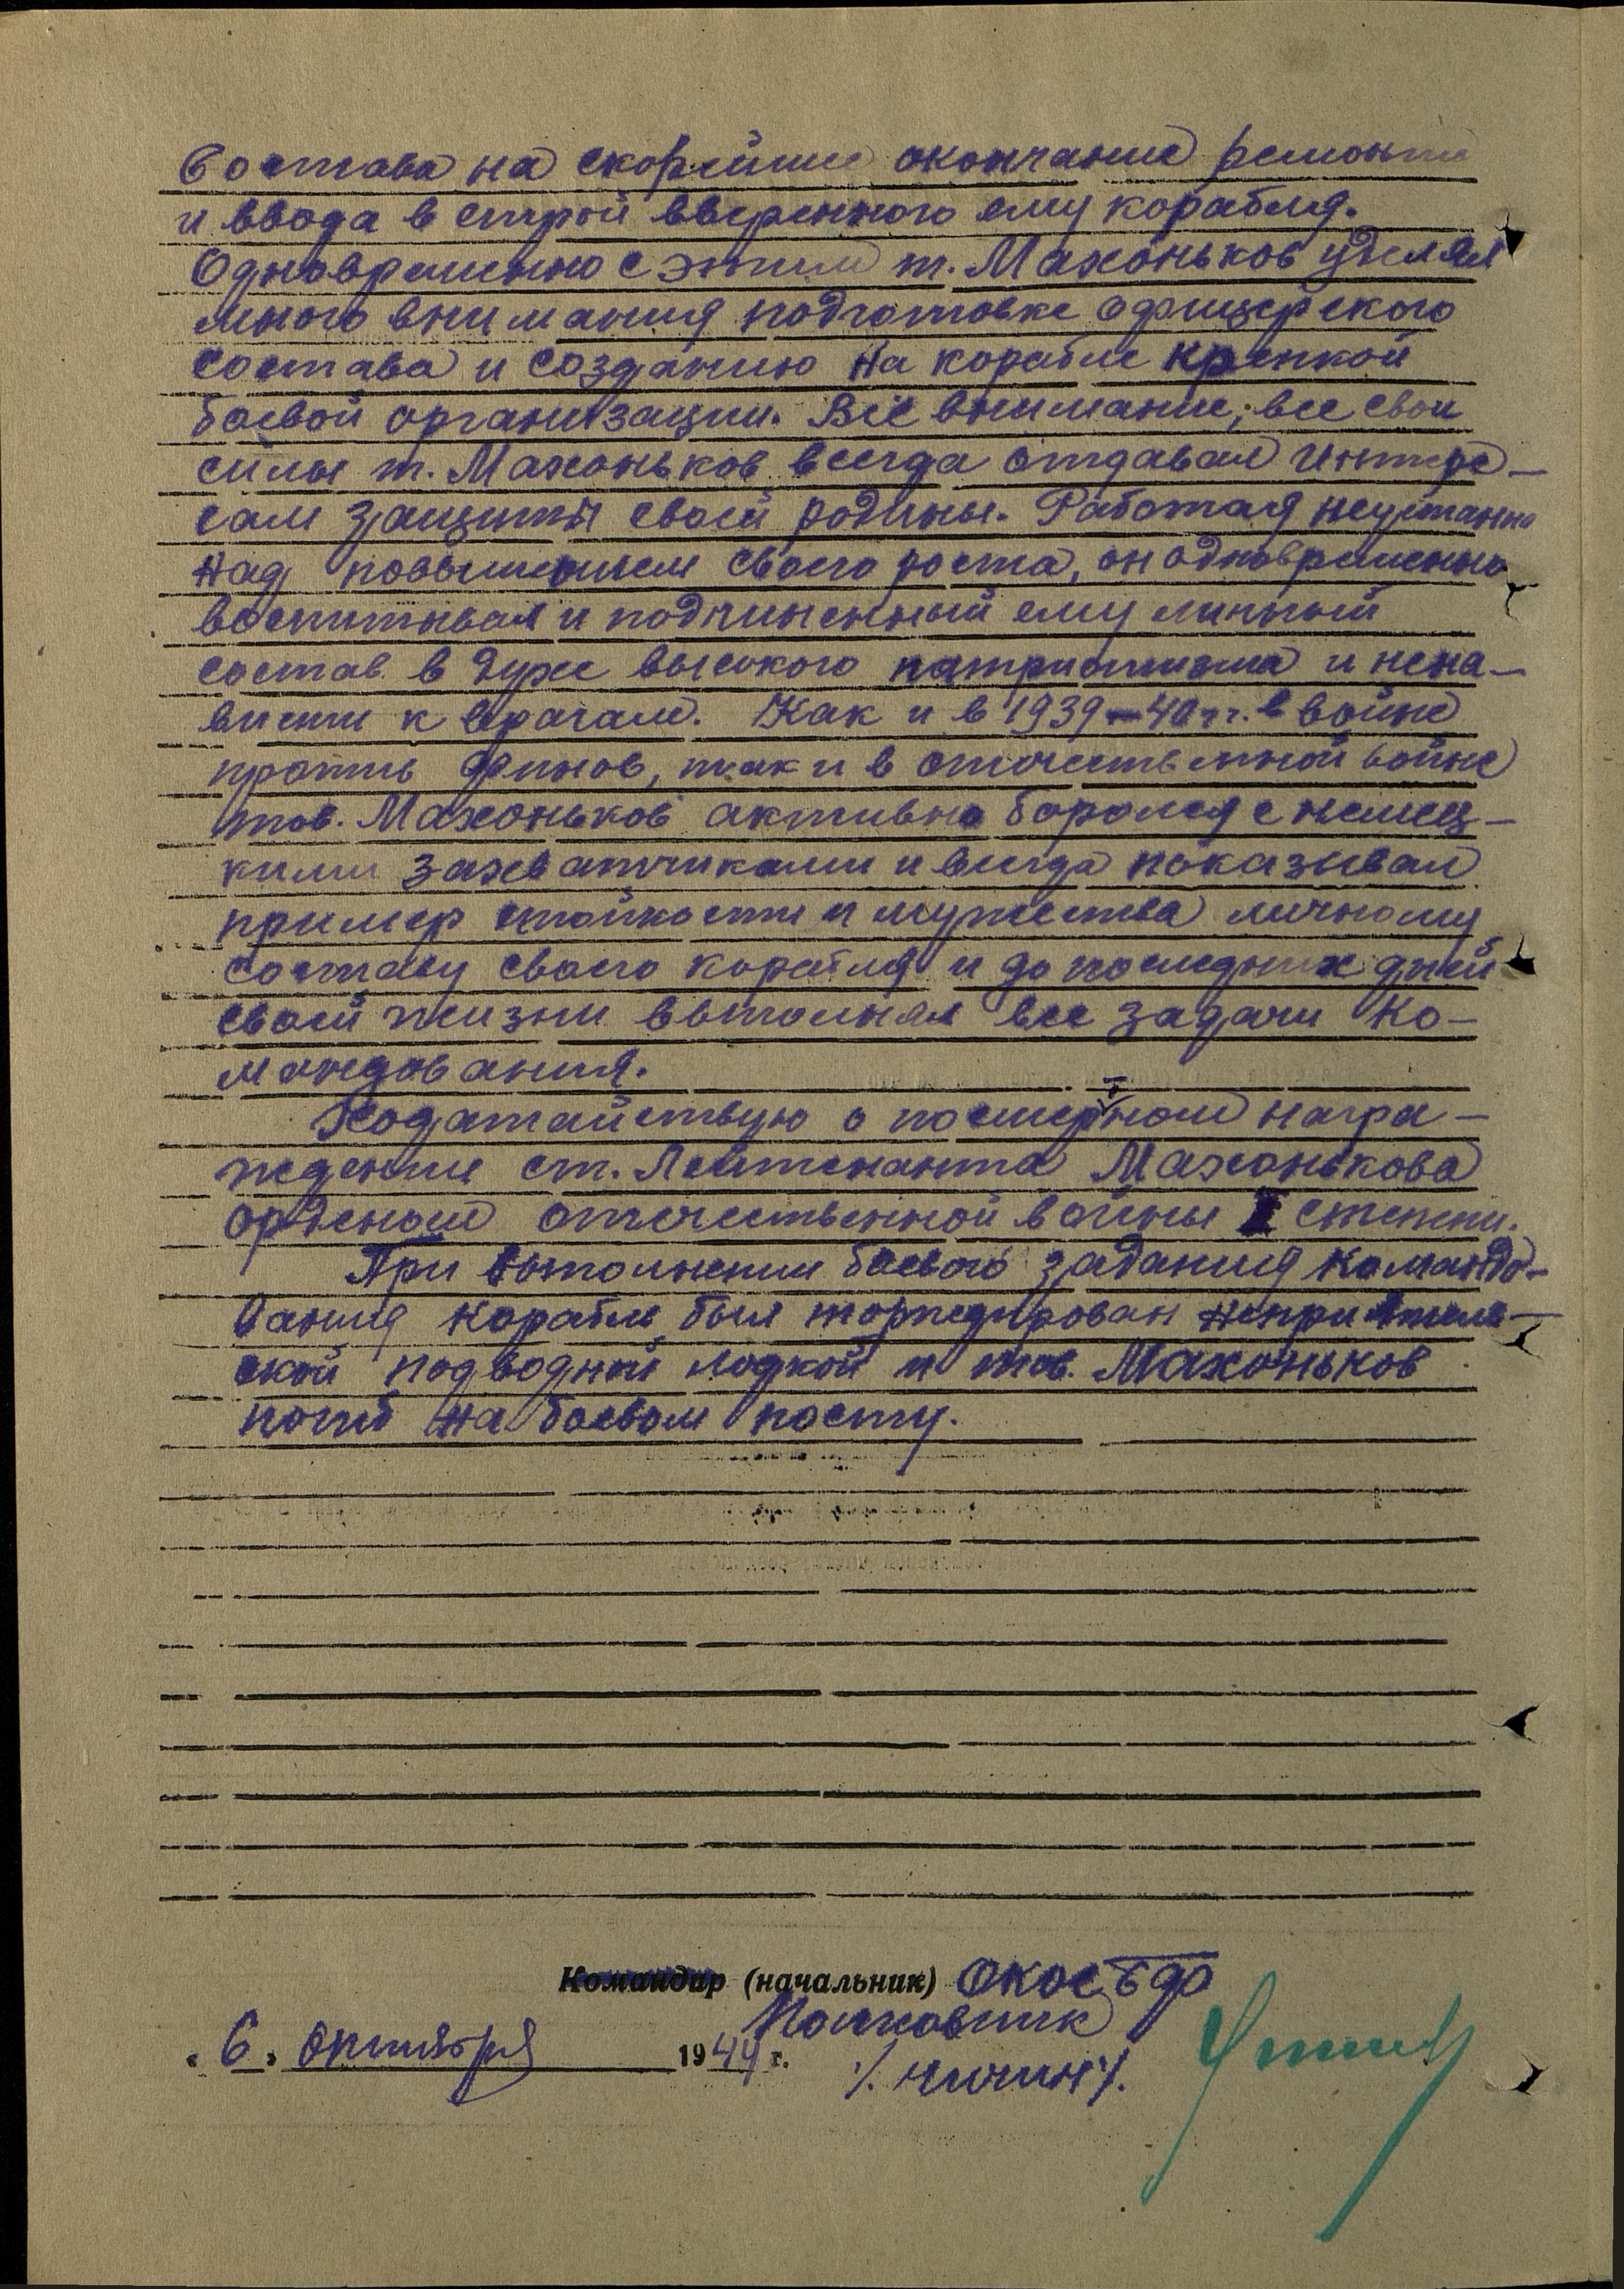 состава на скорейшие окончание ремонта
и ввода в строй вверенного ему корабля.
Одновременно с этим т. Махоньков уделял
много внимания подготовке офицерского
состава и созданию на корабле крепкой
боевой организации. Все внимание, все свои
силы т. Махоньков всегда отдавал интере-
сам защиты своей родины. Работая неустанно
над повышением своего роста, он одновременно
воспитывал и подчиненный ему личный
состав в духе высокого патриотизма и нена-
висти к врагам. Как и в 1939-40 гг. в войне
против финов, так и в отечественной войне
тов. Махоньков активно боролся с немец-
кими захватчиками и всегда показывал
пример стойкости и мужества личному
составу своего корабля и до последних дней
своей жизни выполнял все задачи ко-
мандования.
Ходатайствую о посмертном награ-
ждении ст. Лейтенанта Махонькова
орденом отечественной войны I степени.
При выполнении боевого задания командо-
вания корабль был торпедирован неприятель-
ской подводной лодкой и тов. Махоньков
погиб на боевом посту.
Командир (начальник) ОКОС БФ
Полковник
"6" октября 1944 г. /. Чичин /.